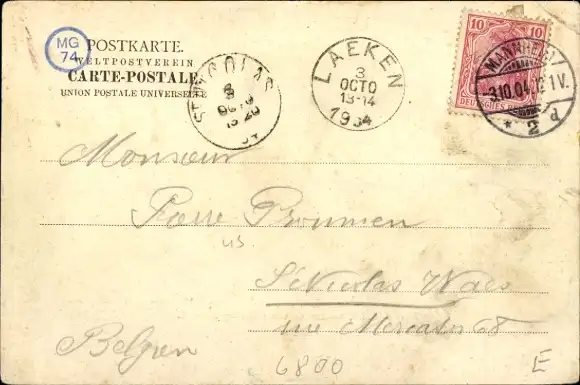 MG
74
POSTKARTE.
WELTPOSTVEREIN
CARTE-POSTALE
UNION POSTALE UNIVERSELLE
ST NICOLAS
OCTO
LAEKEN
3
OCTO
13-14
1904
10 10
DEUTSCHES REICH
MANNHEIM
3.10.04. 1V.
* 2 d
Monsieur
Pierre
us
St Nicolas Waes
rue Mercator 68
Belgien
6800
E